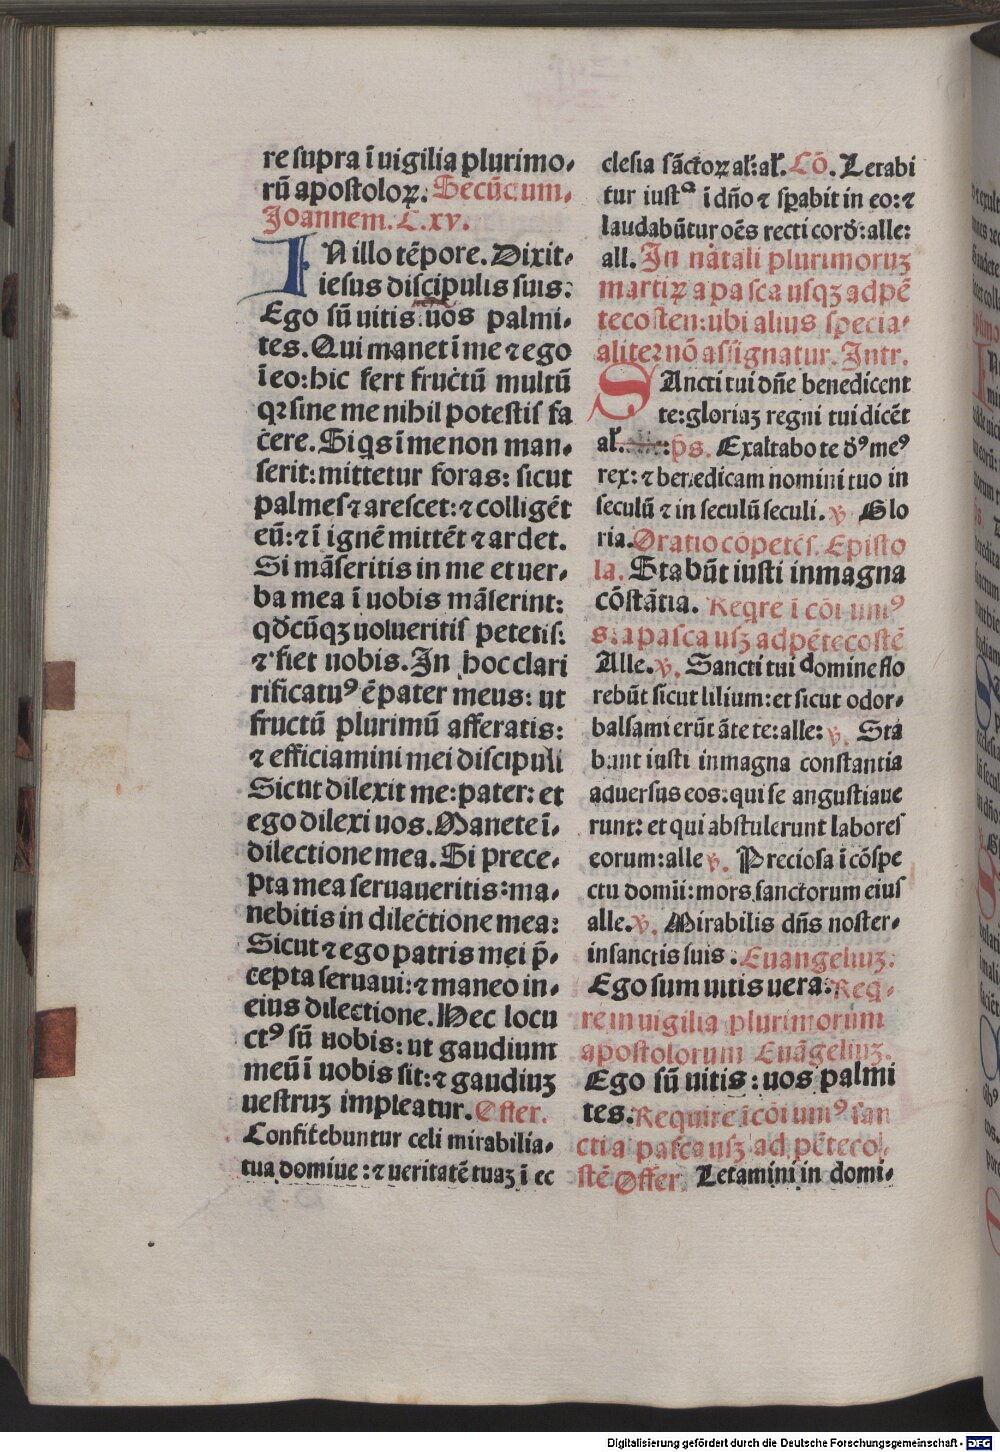 re supra ī uigilia plurimo-
rū apostoloꝝ. Secūdum.
Joannem. C. xv.
IN illo tēpore. Dixit-
iesus discipulis suis:
Ego sū uitis: uos palmi-
tes. Qui manet ī me ⁊ ego
ī eo: hic fert fructū multū
qꝛ sine me nihil potestis fa
cere. Si qs ī me non man-
serit: mittetur foras: sicut
palmes ⁊ arescet: ⁊ colligēt
eū: ⁊ ī ignē mittēt ⁊ ardet.
Si māseritis in me et uer-
ba mea ī uobis māserint:
qd̄cūqꝫ uolueritis petetis:
⁊ fiet uobis. In hoc clari
rificatuꝰ ē pater meus: ut
fructū plurimū afferatis:
⁊ efficiamini mei discipuli
Sicut dilexit me: pater: et
ego dilexi uos. Manete ī-
dilectione mea. Si prece-
pta mea seruaueritis: ma-
nebitis in dilectione mea:
Sicut ⁊ ego patris mei p̄-
cepta seruaui: ⁊ maneo in-
eius dilectione. Hec locu
ctꝰ sū uobis: ut gaudium
meū ī uobis sit: ⁊ gaudiuꝫ
uestruꝫ impleatur. Offer.
Confitebuntur celi mirabilia-
tua domine: ⁊ ueritatē tuaꝫ ī ec
clesia sāctoꝝ al: al̄. Cō. Letabi
tur iustꝰ ī dño ⁊ sꝑabit in eo: ⁊
laudabūtur oēs recti cord̄: alle:
all. In natali plurimoruꝫ
martiꝝ a pasca usqꝫ ad pē
tecosten: ubi alius specia-
aliter nō assignatur. Intr.
SAncti tui dñe benedicent
te: gloriaꝫ regni tui dicēt
al̄. p̄s. Exaltabo te d̄ꝰ meꝰ
rex: ⁊ benedicam nomini tuo in
seculū ⁊ in seculū seculi. ℣ Glo
ria. Oratio cōpetēs. Episto
la. Stabūt iusti in magna
cōstātia. Reqre ī cōi umꝰ
s: a pasca usꝫ ad pētecostē
Alle. ℣. Sancti tui domine flo
rebūt sicut lilium: et sicut odor-
balsami erūt āte te: alle: ℣. Sta
bunt iusti in magna constantia
aduersus eos: qui se angustiaue
runt: et qui abstulerunt labores
eorum: alle ℣. Preciosa ī cōspe
ctu domii: mors sanctorum eius
alle. ℣. Mirabilis dñs noster-
in sanctis suis. Euangeliuꝫ:
Ego sum uitis uera: Req-
re in uigilia plurimorum
apostolorum Euāgeliuꝫ.
Ego sū uitis: uos palmi
tes. Require ī cōi umꝰ san
cti a pasca usꝫ ad pēteco-
stē Offer. Letamini in domi-
Digitalisierung gefördert durch die Deutsche Forschungsgemeinschaft - DFG